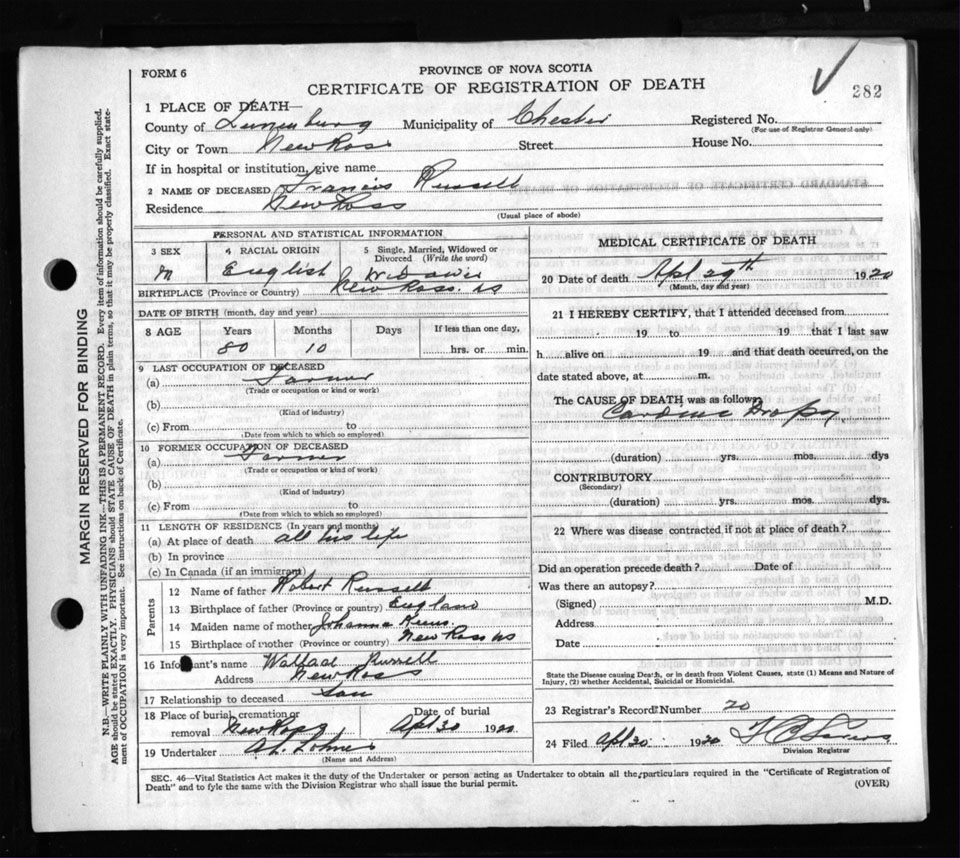 FORM 6
PROVINCE OF NOVA SCOTIA
CERTIFICATE OF REGISTRATION OF DEATH
282
1 PLACE OF DEATH—
County of Lunenburg Municipality of Chester Registered No.
(For use of Registrar General only)
City or Town New Ross Street House No.
If in hospital or institution, give name
2 NAME OF DECEASED Francis Russell
Residence New Ross
(Usual place of abode)
PERSONAL AND STATISTICAL INFORMATION
3 SEX 4 RACIAL ORIGIN 5 Single, Married, Widowed or Divorced (Write the word)
M English Widower
BIRTHPLACE (Province or Country) New Ross. NS
DATE OF BIRTH (month, day and year)
8 AGE Years Months Days If less than one day,
80 10 hrs. or min.
9 LAST OCCUPATION OF DECEASED
(a) Farmer
(Trade or occupation or kind of work)
(b)
(Kind of industry)
(c) From to
(Date from which to which so employed)
10 FORMER OCCUPATION OF DECEASED
(a) Farmer
(Trade or occupation or kind of work)
(b)
(Kind of industry)
(c) From to
(Date from which to which so employed)
11 LENGTH OF RESIDENCE (In years and months)
(a) At place of death all his life
(b) In province
(c) In Canada (if an immigrant)
Parents
12 Name of father Robert Russell
13 Birthplace of father (Province or country) England
14 Maiden name of mother Johanna
15 Birthplace of mother (Province or country) New Ross NS
16 Informant's name Russell
Address New Ross
17 Relationship to deceased Son
18 Place of burial, cremation or removal New Ross Date of burial Apl 30 1920
19 Undertaker
(Name and Address)
MEDICAL CERTIFICATE OF DEATH
20 Date of death Apl 29th 1920
(Month, day and year)
21 I HEREBY CERTIFY, that I attended deceased from
19 to 19 that I last saw
h alive on 19 and that death occurred, on the
date stated above, at m.
The CAUSE OF DEATH was as follows
Dropsy
(duration) yrs. mos. dys
CONTRIBUTORY
(Secondary)
(duration) yrs. mos. dys.
22 Where was disease contracted, if not at place of death?
Did an operation precede death? Date of
Was there an autopsy?
(Signed) M.D.
Address
Date
State the Disease causing Death, or in death from Violent Causes, state (1) Means and Nature of Injury, (2) whether Accidental, Suicidal or Homicidal.
23 Registrar's Record Number 20
24 Filed Apl 30 1920
Division Registrar
SEC. 46—Vital Statistics Act makes it the duty of the Undertaker or person acting as Undertaker to obtain all the particulars required in the "Certificate of Registration of
Death" and to fyle the same with the Division Registrar who shall issue the burial permit.
(OVER)
MARGIN RESERVED FOR BINDING
N.B.—WRITE PLAINLY WITH UNFADING INK—THIS IS A PERMANENT RECORD. Every item of information should be carefully supplied.
AGE should be stated EXACTLY. PHYSICIANS should STATE CAUSE OF DEATH in plain terms, so that it may be properly classified. Exact statement of OCCUPATION is very important. See instructions on back of Certificate.